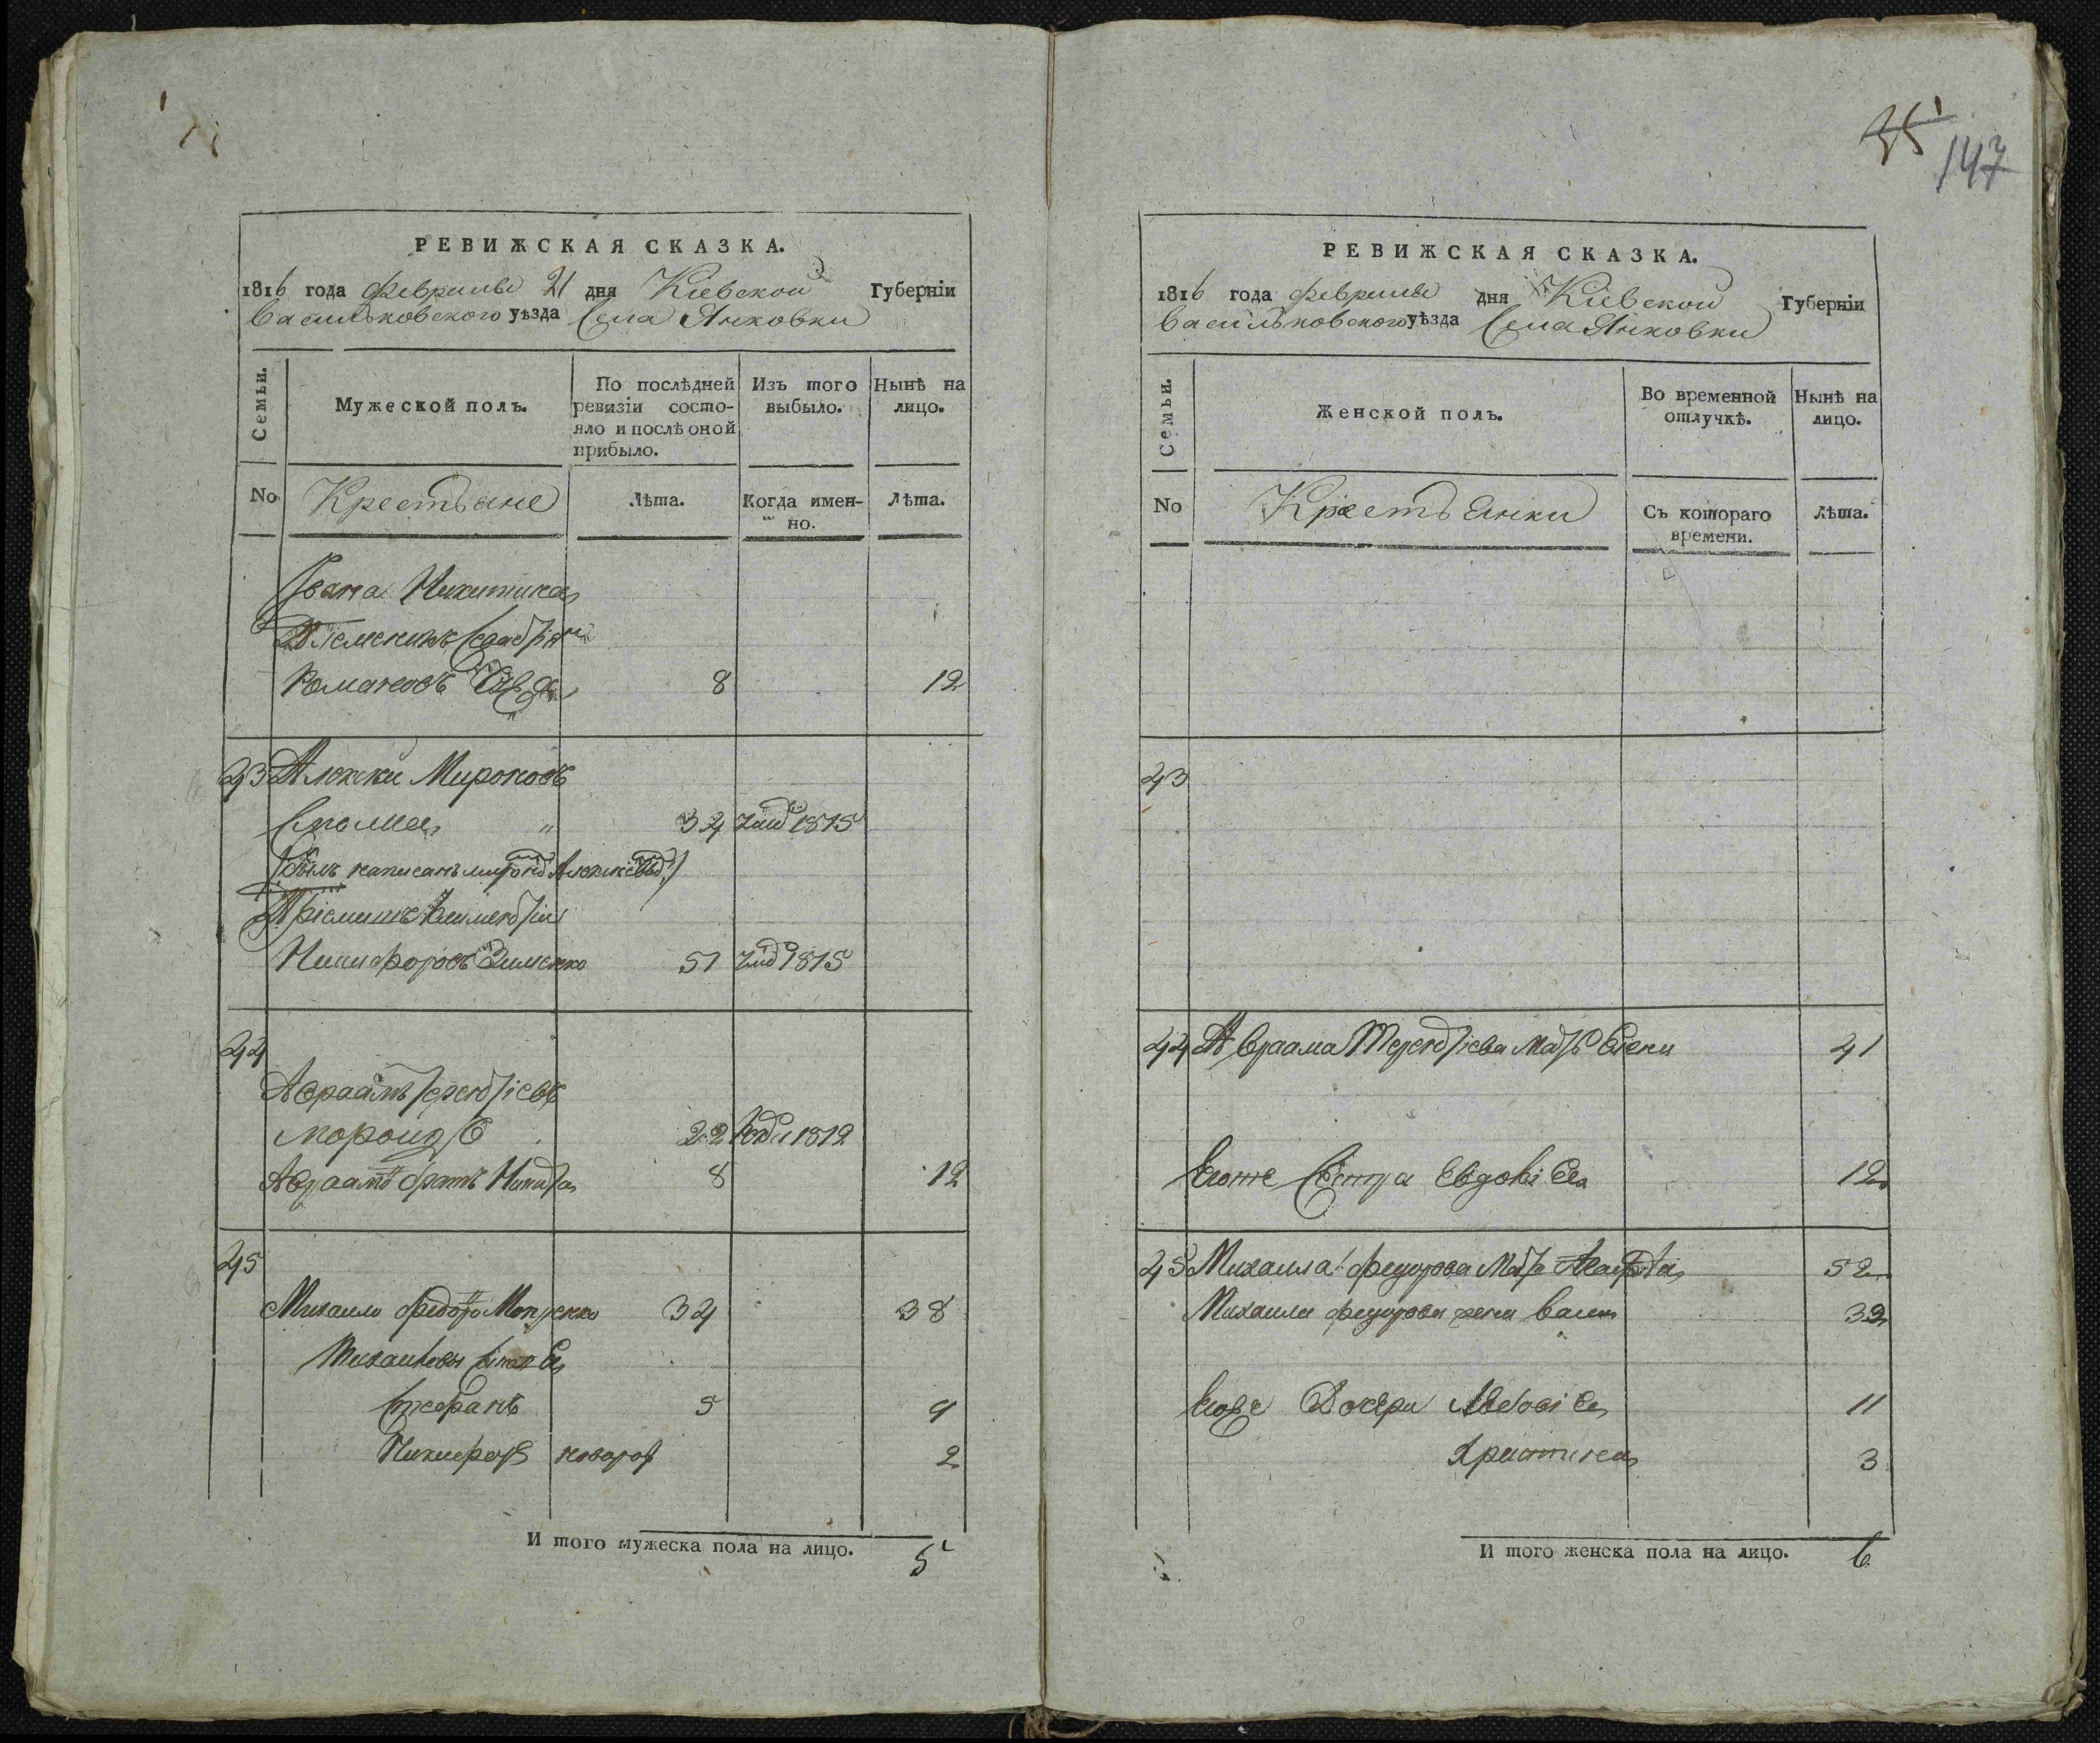 35
147
РЕВИЖСКАЯ СКАЗКА.
1816 года февраля 21 дня Кіевской Губерніи
Васильковского уѣзда Села Янковки
Семьи.
Мужеской полъ.
По послѣдней ревизіи состо-
яло и послѣ оной прибыло.
Изъ того выбыло.
Нынѣ на лицо.
No
Крестьяне
Лѣта.
Когда имен-
но.
Лѣта.
Ивана Никитина
Племеникъ
Романовъ
8
12
23 Мироновъ
34 1815
былъ написанъ
Никифоровъ Зименко 51 1815
24
Авраамъ Терентіевъ
22 1812
Авраамъ братъ Никита 8 12
25
Михаило Федоро 34 38
Михаиловы
Стефанъ 5 9
Никифоръ новорож 2
И того мужеска пола на лицо. 5
РЕВИЖСКАЯ СКАЗКА.
1816 года февраля дня Кіевской Губерніи
Васильковского уѣзда Села Янковки
Семьи.
Женской полъ.
Во временной отлучкѣ.
Нынѣ на лицо.
No
Крестьянки
Съ котораго времени.
Лѣта.
23
24 Авраама Терентіева Мать Елена 41
Егоже Сестра Евдокіея 12
25 Михаила Федорова Мать Агафія 52
Михаила Федорова жена 33
Егоже Дочери 11
Христина 3
И того женска пола на лицо. 6